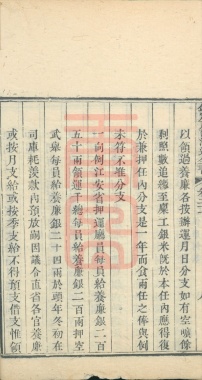 以領過養廉各按辦運月日分支如有空曠係
剥豁數追繳至羹工銀米旣於本任內應得復
於兼押任內分支是一年而食兩任之俸與例
未符不准分支
一向例江安省押運廳員每員給養廉銀二百
五十兩領運千總每員給養廉銀二百兩押空
武舉每員給養廉銀二十四兩於頭年冬初在
司庫耗羨款內預放嗣因議令直省各官養廉
或按月支給或按季支給不得預支借支惟領